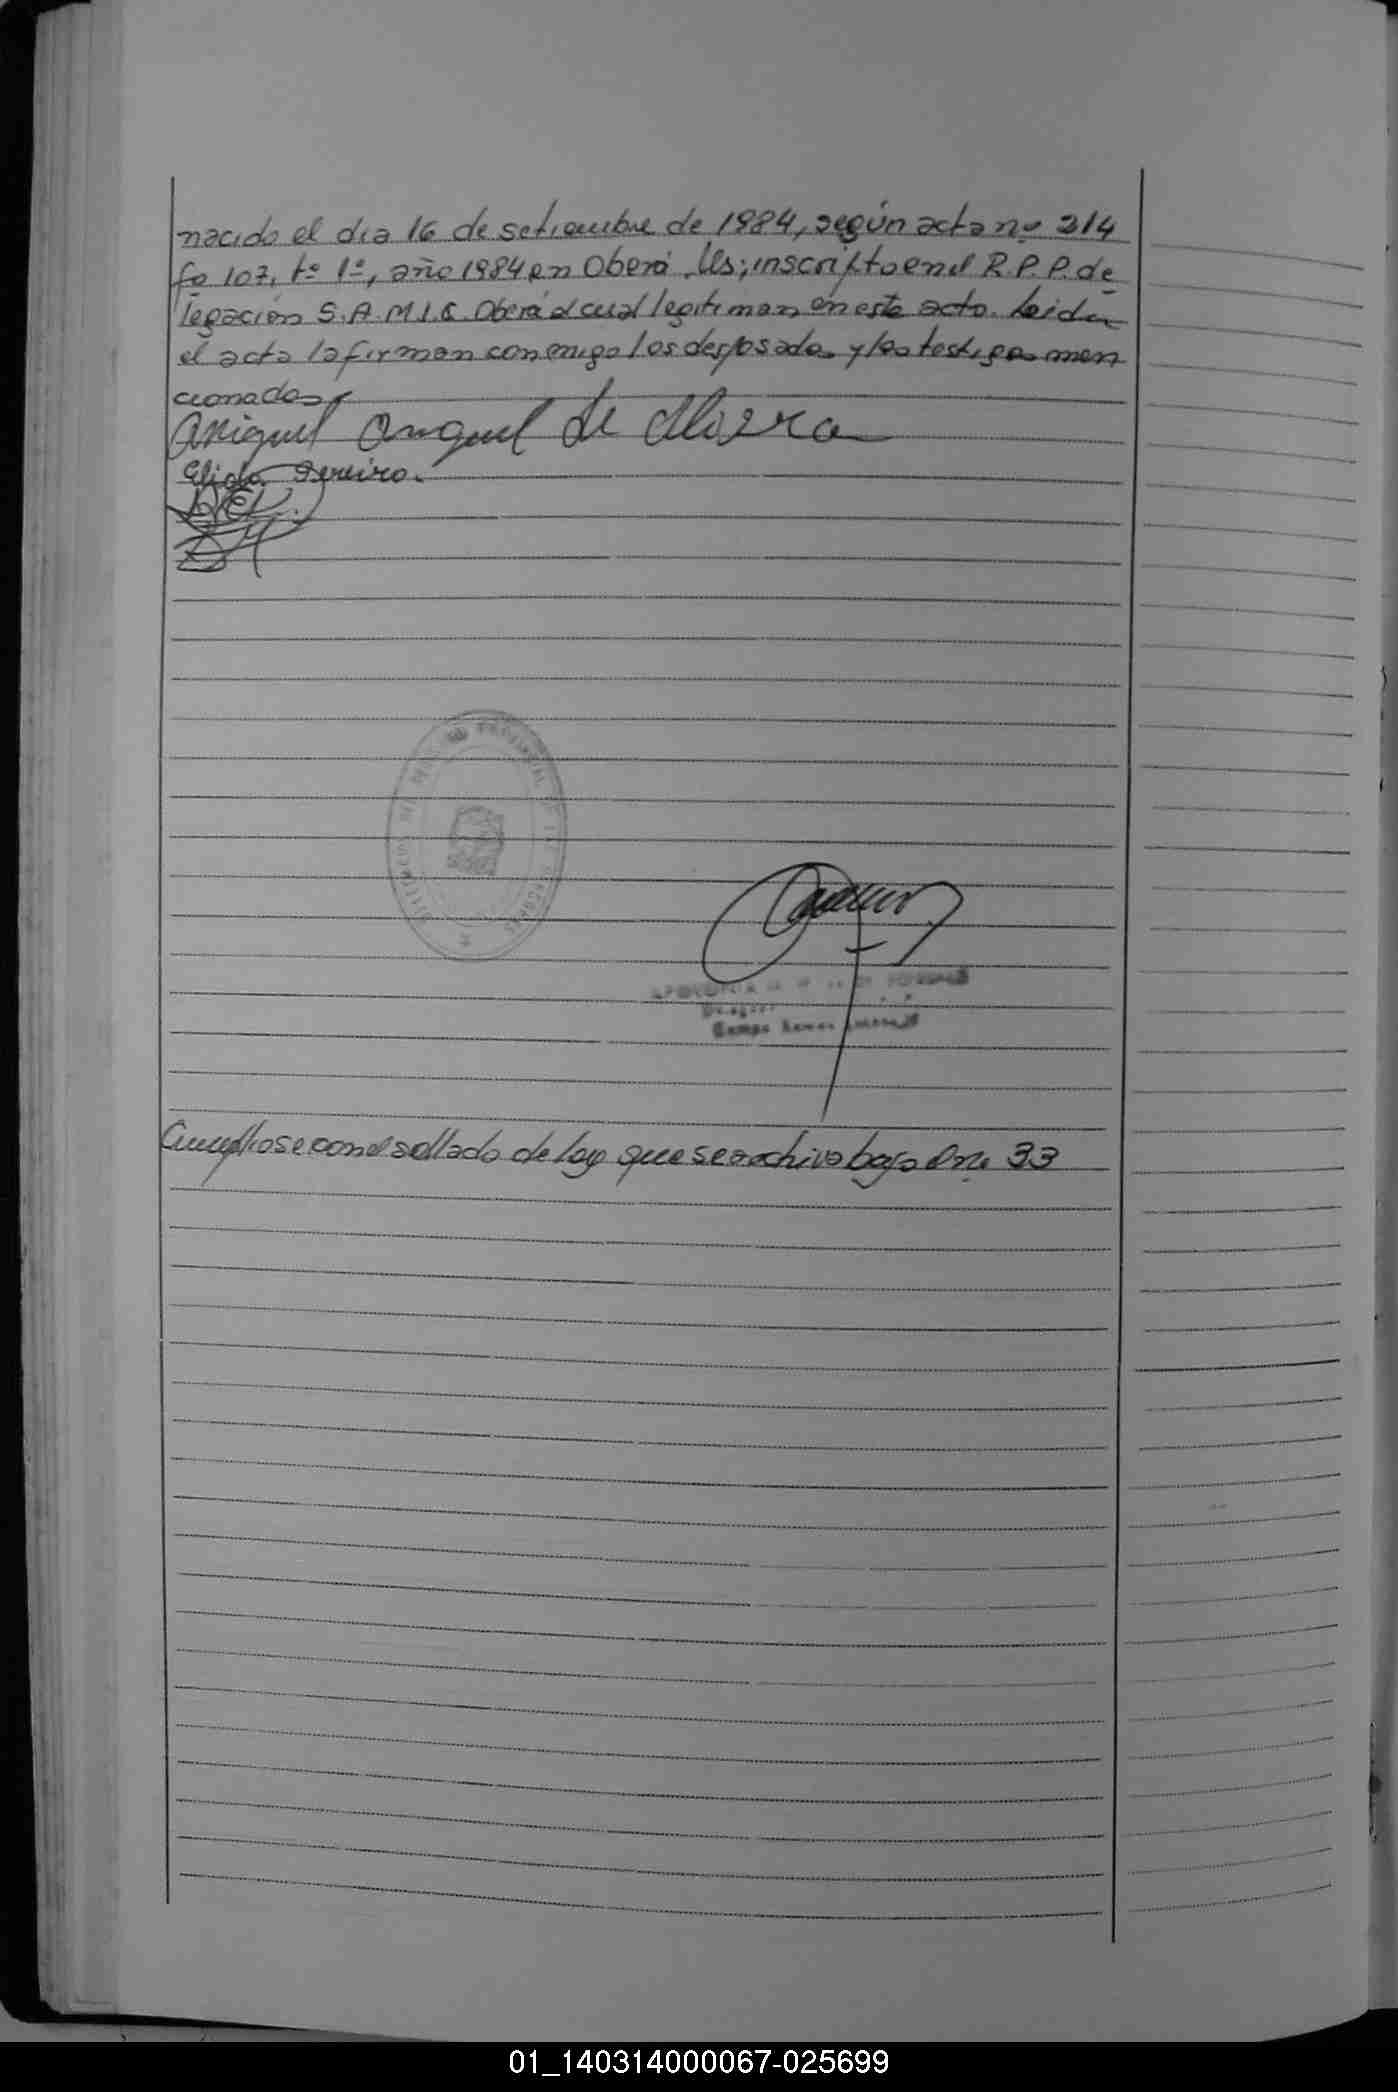 nacido el dia 16 de setiembre de 1984, según acta nº 314
fo 107, tº 1º, año 1984 en Oberá, Ms; inscripto en el R.P.P. de
legación S.A.M.I.C. Oberá al cual legitiman en este acto. Leida
el acta la firman conmigo los desposados y los testigos men
cionados
Miguel Angel de Olivera
Elida Pereiro.
PROVINCIAL DE LAS PERSONAS
Campo Ramon
Cumpliose con el sellado de ley que se archiva bajo el nº 33
01_140314000067-025699